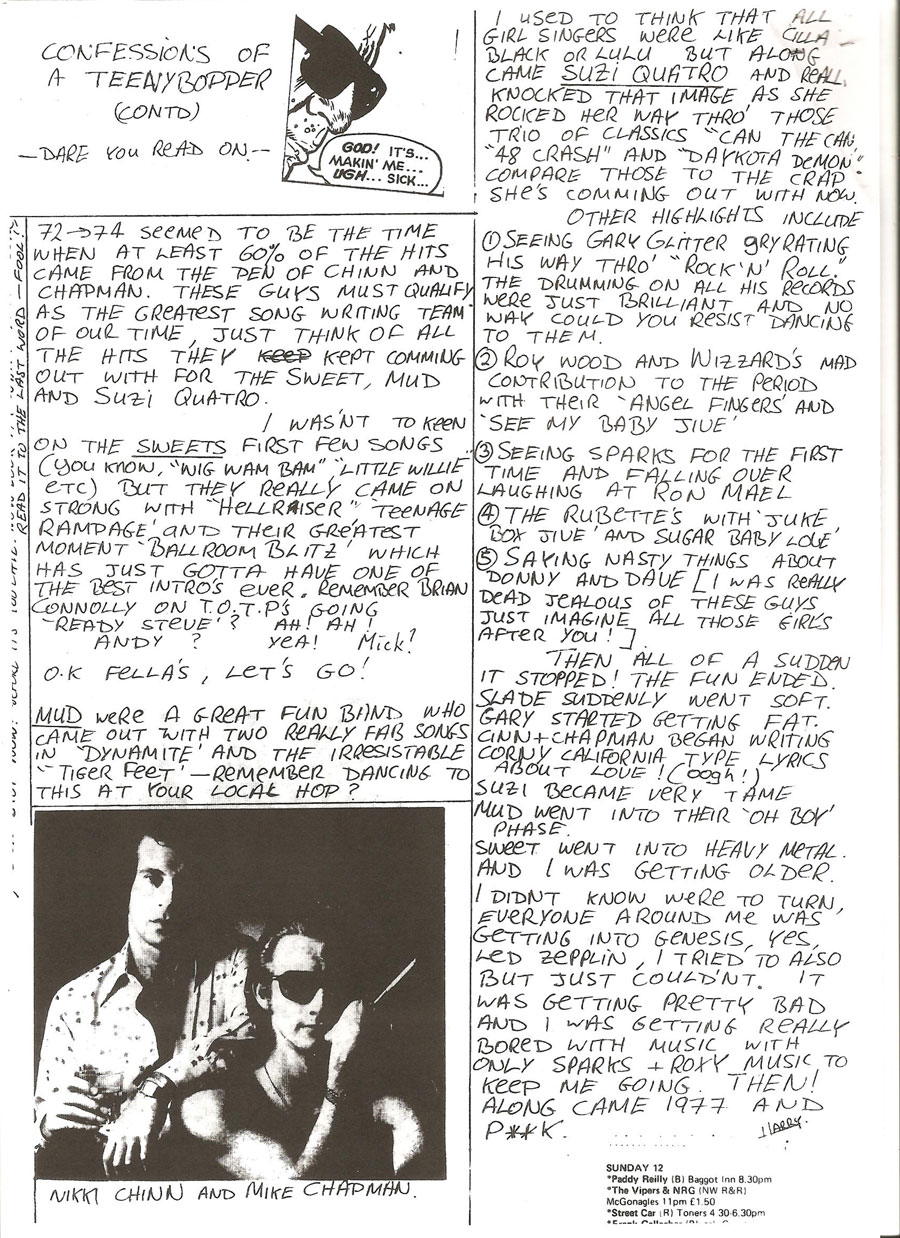 CONFESSIONS OF
A TEENYBOPPER
(CONTD)
—DARE YOU READ ON.—
GOD! IT'S...
MAKIN' ME...
UGH... SICK...
72→74 SEEMED TO BE THE TIME
WHEN AT LEAST 60% OF THE HITS
CAME FROM THE PEN OF CHINN AND
CHAPMAN. THESE GUYS MUST QUALIFY
AS THE GREATEST SONG WRITING TEAM
OF OUR TIME, JUST THINK OF ALL
THE HITS THEY KEEP KEPT COMMING
OUT WITH FOR THE SWEET, MUD
AND SUZI QUATRO.
I WAS'NT TO KEEN
ON THE SWEETS FIRST FEW SONGS
(YOU KNOW, "WIG WAM BAM" "LITTLE WILLIE"
ETC) BUT THEY REALLY CAME ON
STRONG WITH "HELLRAISER" TEENAGE
RAMPAGE' AND THEIR GREATEST
MOMENT `BALLROOM BLITZ' WHICH
HAS JUST GOTTA HAVE ONE OF
THE BEST INTRO'S EVER. REMEMBER BRIAN
CONNOLLY ON T.O.T.P'S GOING
`READY STEVE'? AH! AH!
ANDY ? YEA! MICK?
O.K FELLA'S, LET'S GO!
MUD WERE A GREAT FUN BAND WHO
CAME OUT WITH TWO REALLY FAB SONGS
IN `DYNAMITE' AND THE IRRESISTABLE
`TIGER FEET'—REMEMBER DANCING TO
THIS AT YOUR LOCAL HOP?
NIKKI CHINN AND MIKE CHAPMAN.
READ IT TO THE LAST WORD — FOOL!?
I USED TO THINK THAT ALL
GIRL SINGERS WERE LIKE CILLA
BLACK OR LULU BUT ALONG
CAME SUZI QUATRO AND REALL
KNOCKED THAT IMAGE AS SHE
ROCKED HER WAY THRO' THOSE
TRIO OF CLASSICS "CAN THE CAN,
"48 CRASH" AND "DAYKOTA DEMON"
COMPARE THOSE TO THE CRAP
SHE'S COMMING OUT WITH NOW.
OTHER HIGHLIGHTS INCLUDE
① SEEING GARY GLITTER GRYRATING
HIS WAY THRO' "ROCK 'N' ROLL."
THE DRUMMING ON ALL HIS RECORDS
WERE JUST BRILLIANT AND NO
WAY COULD YOU RESIST DANCING
TO THEM.
② ROY WOOD AND WIZZARD'S MAD
CONTRIBUTION TO THE PERIOD
WITH THEIR `ANGEL FINGERS' AND
`SEE MY BABY JIVE'
③ SEEING SPARKS FOR THE FIRST
TIME AND FALLING OVER
LAUGHING AT RON MAEL
④ THE RUBETTE'S WITH `JUKE
BOX JIVE' AND SUGAR BABY LOVE'
⑤ SAYING NASTY THINGS ABOUT
DONNY AND DAVE [I WAS REALLY
DEAD JEALOUS OF THESE GUYS
JUST IMAGINE ALL THOSE GIRL'S
AFTER YOU!].
THEN ALL OF A SUDDEN
IT STOPPED! THE FUN ENDED.
SLADE SUDDENLY WENT SOFT.
GARY STARTED GETTING FAT.
CINN+CHAPMAN BEGAN WRITING
CORNY CALIFORNIA TYPE LYRICS
ABOUT LOVE! (OOGH!)
SUZI BECAME VERY TAME
MUD WENT INTO THEIR `OH BOY'
PHASE.
SWEET WENT INTO HEAVY METAL.
AND I WAS GETTING OLDER.
I DIDNT KNOW WERE TO TURN,
EVERYONE AROUND ME WAS
GETTING INTO GENESIS, YES,
LED ZEPPLIN, I TRIED TO ALSO
BUT JUST COULD'NT. IT
WAS GETTING PRETTY BAD
AND I WAS GETTING REALLY
BORED WITH MUSIC WITH
ONLY SPARKS + ROXY MUSIC TO
KEEP ME GOING. THEN!
ALONG CAME 1977 AND
P**K.
HARRY.
SUNDAY 12
*Paddy Reilly (B) Baggot Inn 8.30pm
*The Vipers & NRG (NW R&R)
McGonagles 11pm £1.50
*Street Car (R) Toners 4 30-6.30pm